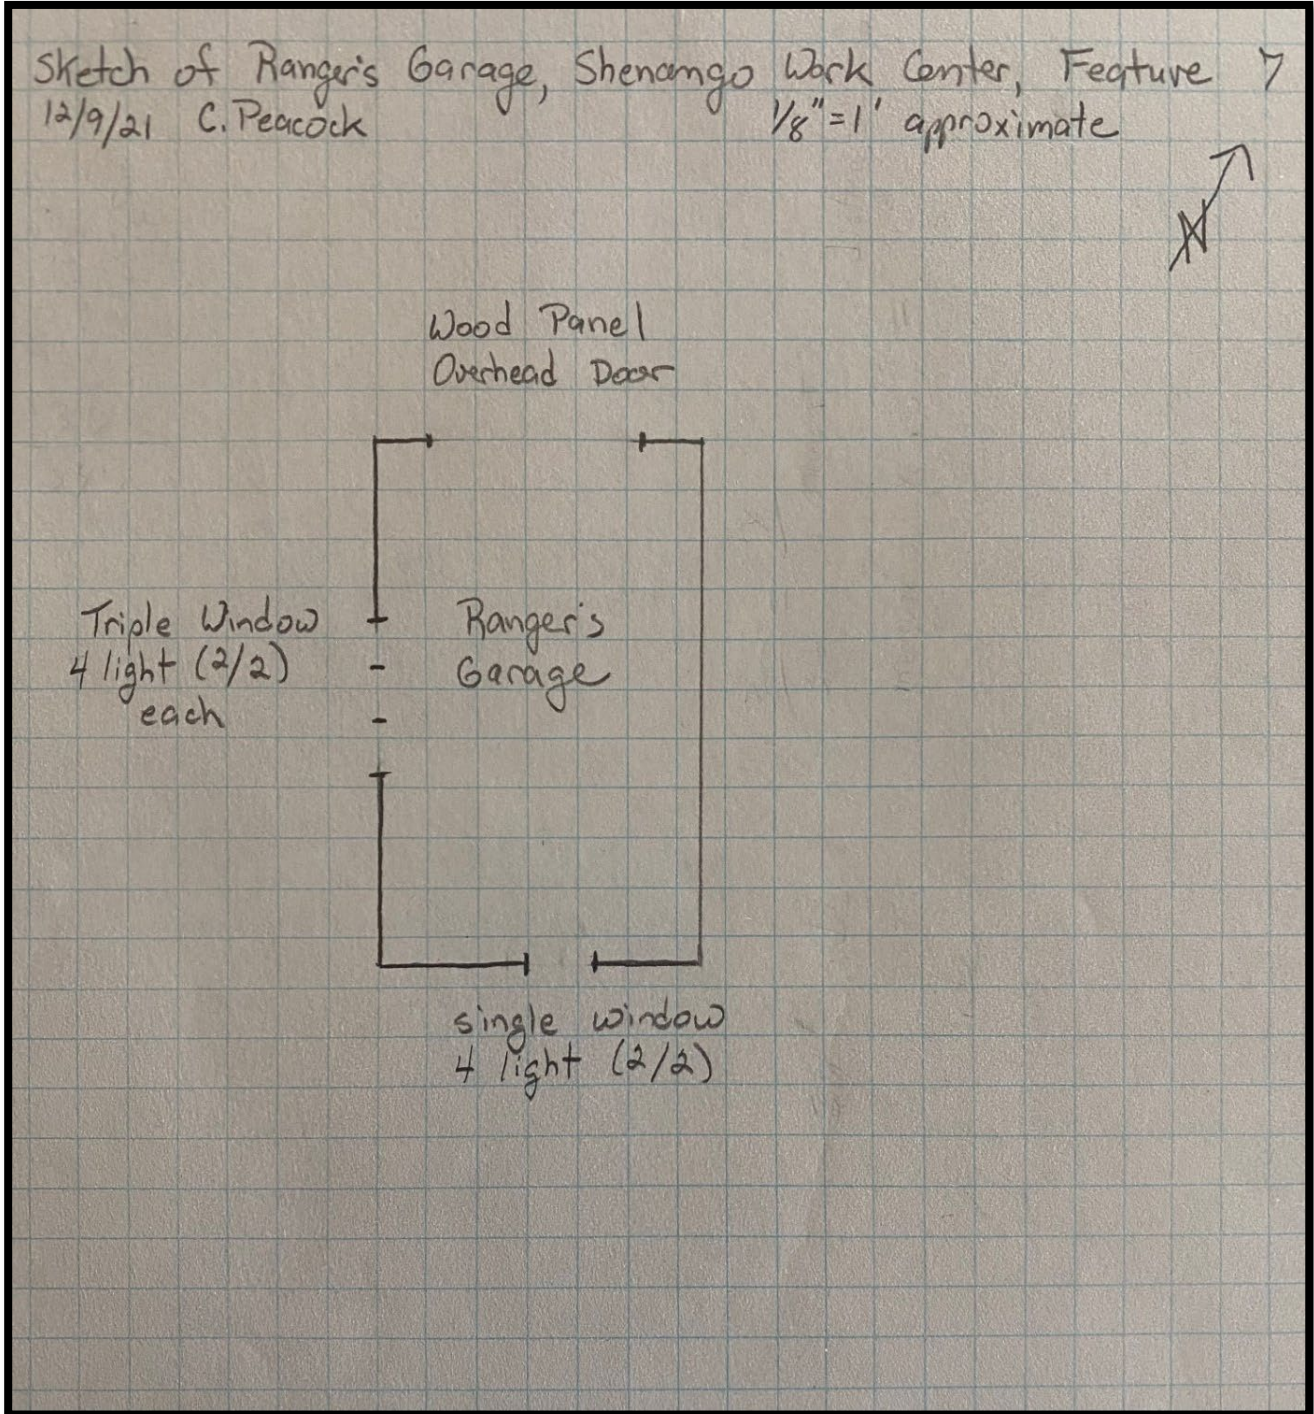 Sketch of Ranger's Garage, Shenango Work Center, Feature 7
12/9/21 C. Peacock 1/8"=1' approximate
N
Wood Panel
Overhead Door
Triple Window
4 light (2/2)
each
Ranger's
Garage
single window
4 light (2/2)